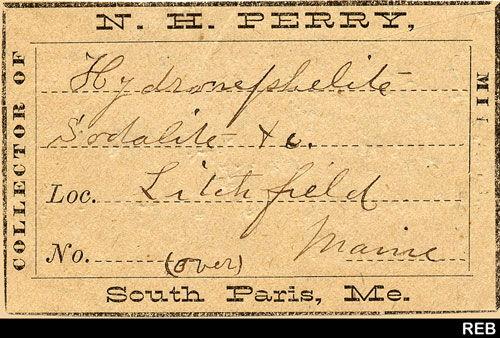 N. H. PERRY,
COLLECTOR OF
Hydronephelite
Sodalite &c.
Loc. Litchfield
Maine
No. (over)
South Paris, Me.
REB